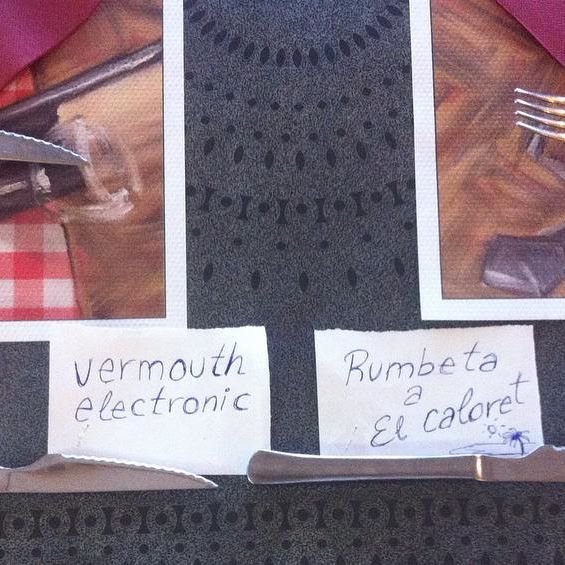 vermouth
electronic
Rumbeta
a
El caloret